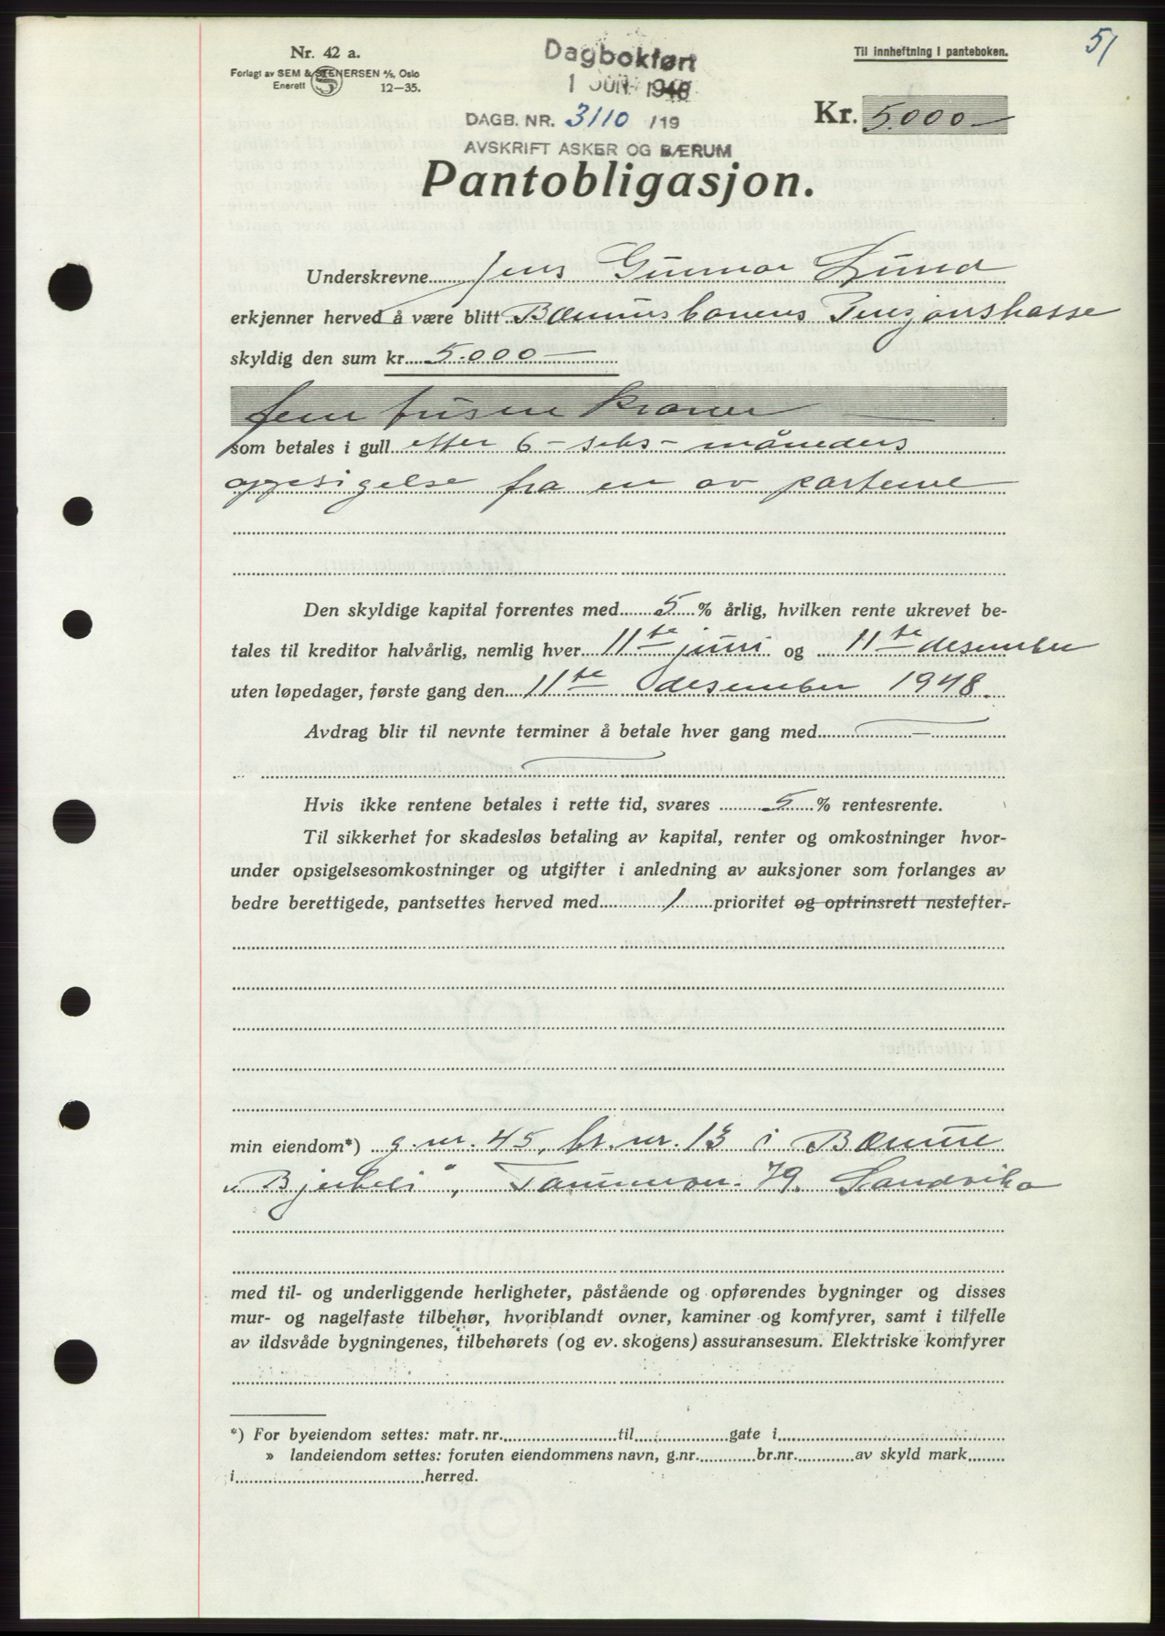 51
Nr. 42 a.
Forlagt av SEM & STENERSEN A/S, Oslo
Enerett 12—35.
Dagbokført
1 JUNI 1948
DAGB. NR. 3110 /19
AVSKRIFT ASKER OG BÆRUM
Til innheftning i panteboken.
Kr. 5.000 —
Pantobligasjon.
Underskrevne Jens Gunnar Lund
erkjenner herved å være blitt Bærumsbanens Pensjonskasse
skyldig den sum kr. 5.000 —
fem tusen kroner —
som betales i gull etter 6 – seks – måneders
oppsigelse fra en av partene
Den skyldige kapital forrentes med 5 % årlig, hvilken rente ukrevet be-
tales til kreditor halvårlig, nemlig hver 11te juni og 11te desember
uten løpedager, første gang den 11te desember 1948.
Avdrag blir til nevnte terminer å betale hver gang med —
Hvis ikke rentene betales i rette tid, svares 5 % rentesrente.
Til sikkerhet for skadesløs betaling av kapital, renter og omkostninger hvor-
under opsigelsesomkostninger og utgifter i anledning av auksjoner som forlanges av
bedre berettigede, pantsettes herved med 1 prioritet og optrinsrett nestefter
min eiendom*) g.nr. 45, br.nr. 13 i Bærum
„Bjerkeli“, Tanumvn. 79. Sandvika
med til- og underliggende herligheter, påstående og opførendes bygninger og disses
mur- og nagelfaste tilbehør, hvoriblandt ovner, kaminer og komfyrer, samt i tilfelle
av ildsvåde bygningenes, tilbehørets (og ev. skogens) assuransesum. Elektriske komfyrer
*) For byeiendom settes: matr. nr. til gate i
» landeiendom settes: foruten eiendommens navn, g.nr. br.nr. av skyld mark
i herred.